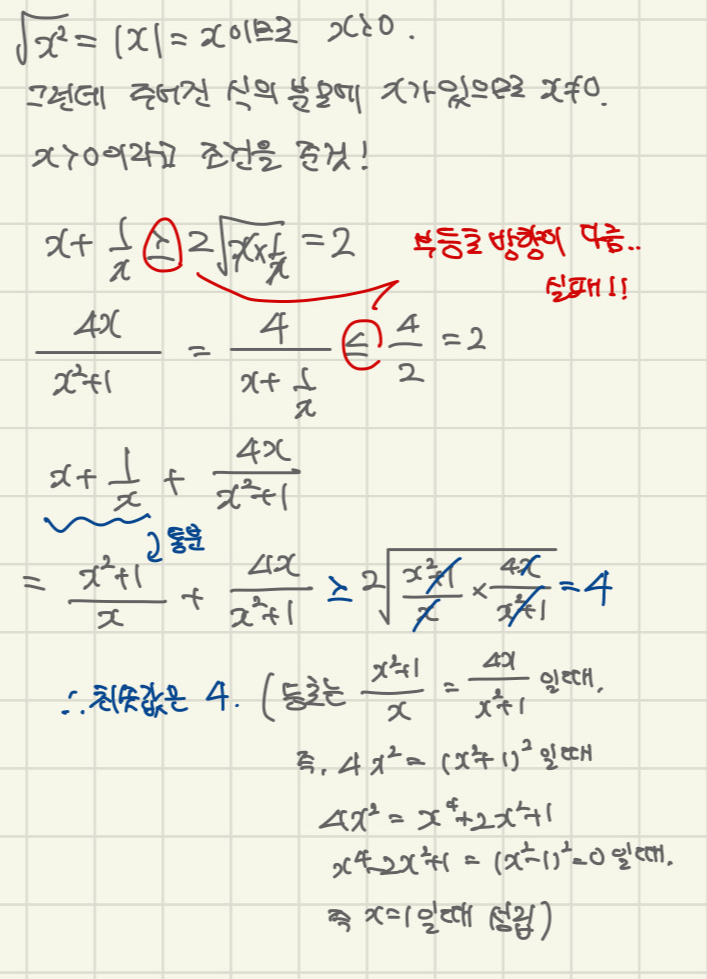 √x² = |x| = x 이므로 x≥0.
그런데 주어진 식의 분모에 x가 있으므로 x≠0.
x>0이라고 조건을 준것!
x + 1/x ≥ 2√(x × 1/x) = 2
부등호 방향이 다름..
실패!!
4x/(x²+1) = 4/(x + 1/x) ≤ 4/2 = 2
x + 1/x + 4x/(x²+1)
통분
= (x²+1)/x + 4x/(x²+1) ≥ 2√((x²+1)/x × 4x/(x²+1)) = 4
∴ 최솟값은 4. (등호는 (x²+1)/x = 4x/(x²+1) 일때,
즉, 4x² = (x²+1)² 일때
4x² = x⁴+2x²+1
x⁴-2x²+1 = (x²-1)² = 0 일때.
즉 x=1일때 성립)